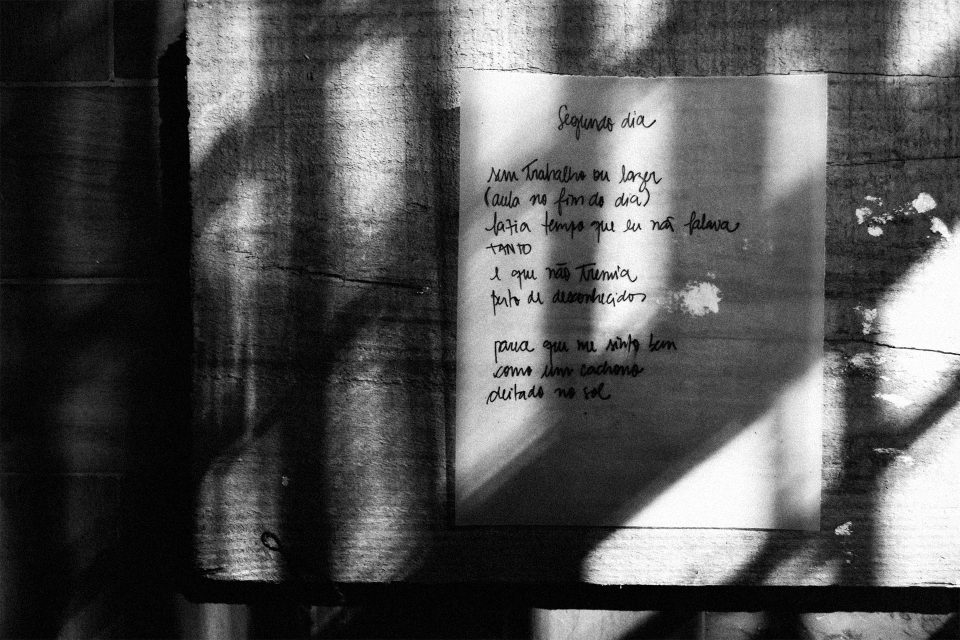 Segundo dia
sem trabalho ou lazer
(aula no fim do dia)
fazia tempo que eu não falava
TANTO
e que não tremia
perto de desconhecidos
que me sinto bem
como um cachorro
deitado no sol